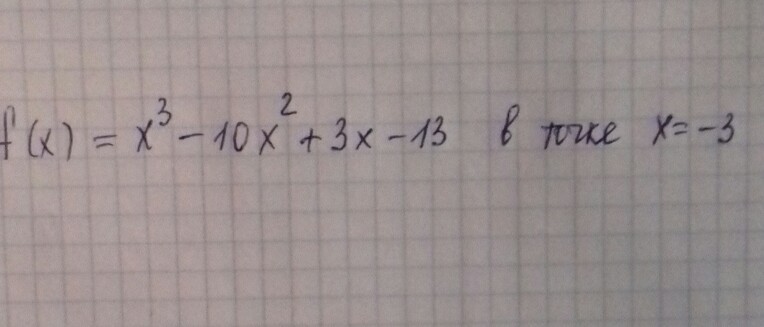 f(x) = x³ - 10x² + 3x - 13 в точке x = -3